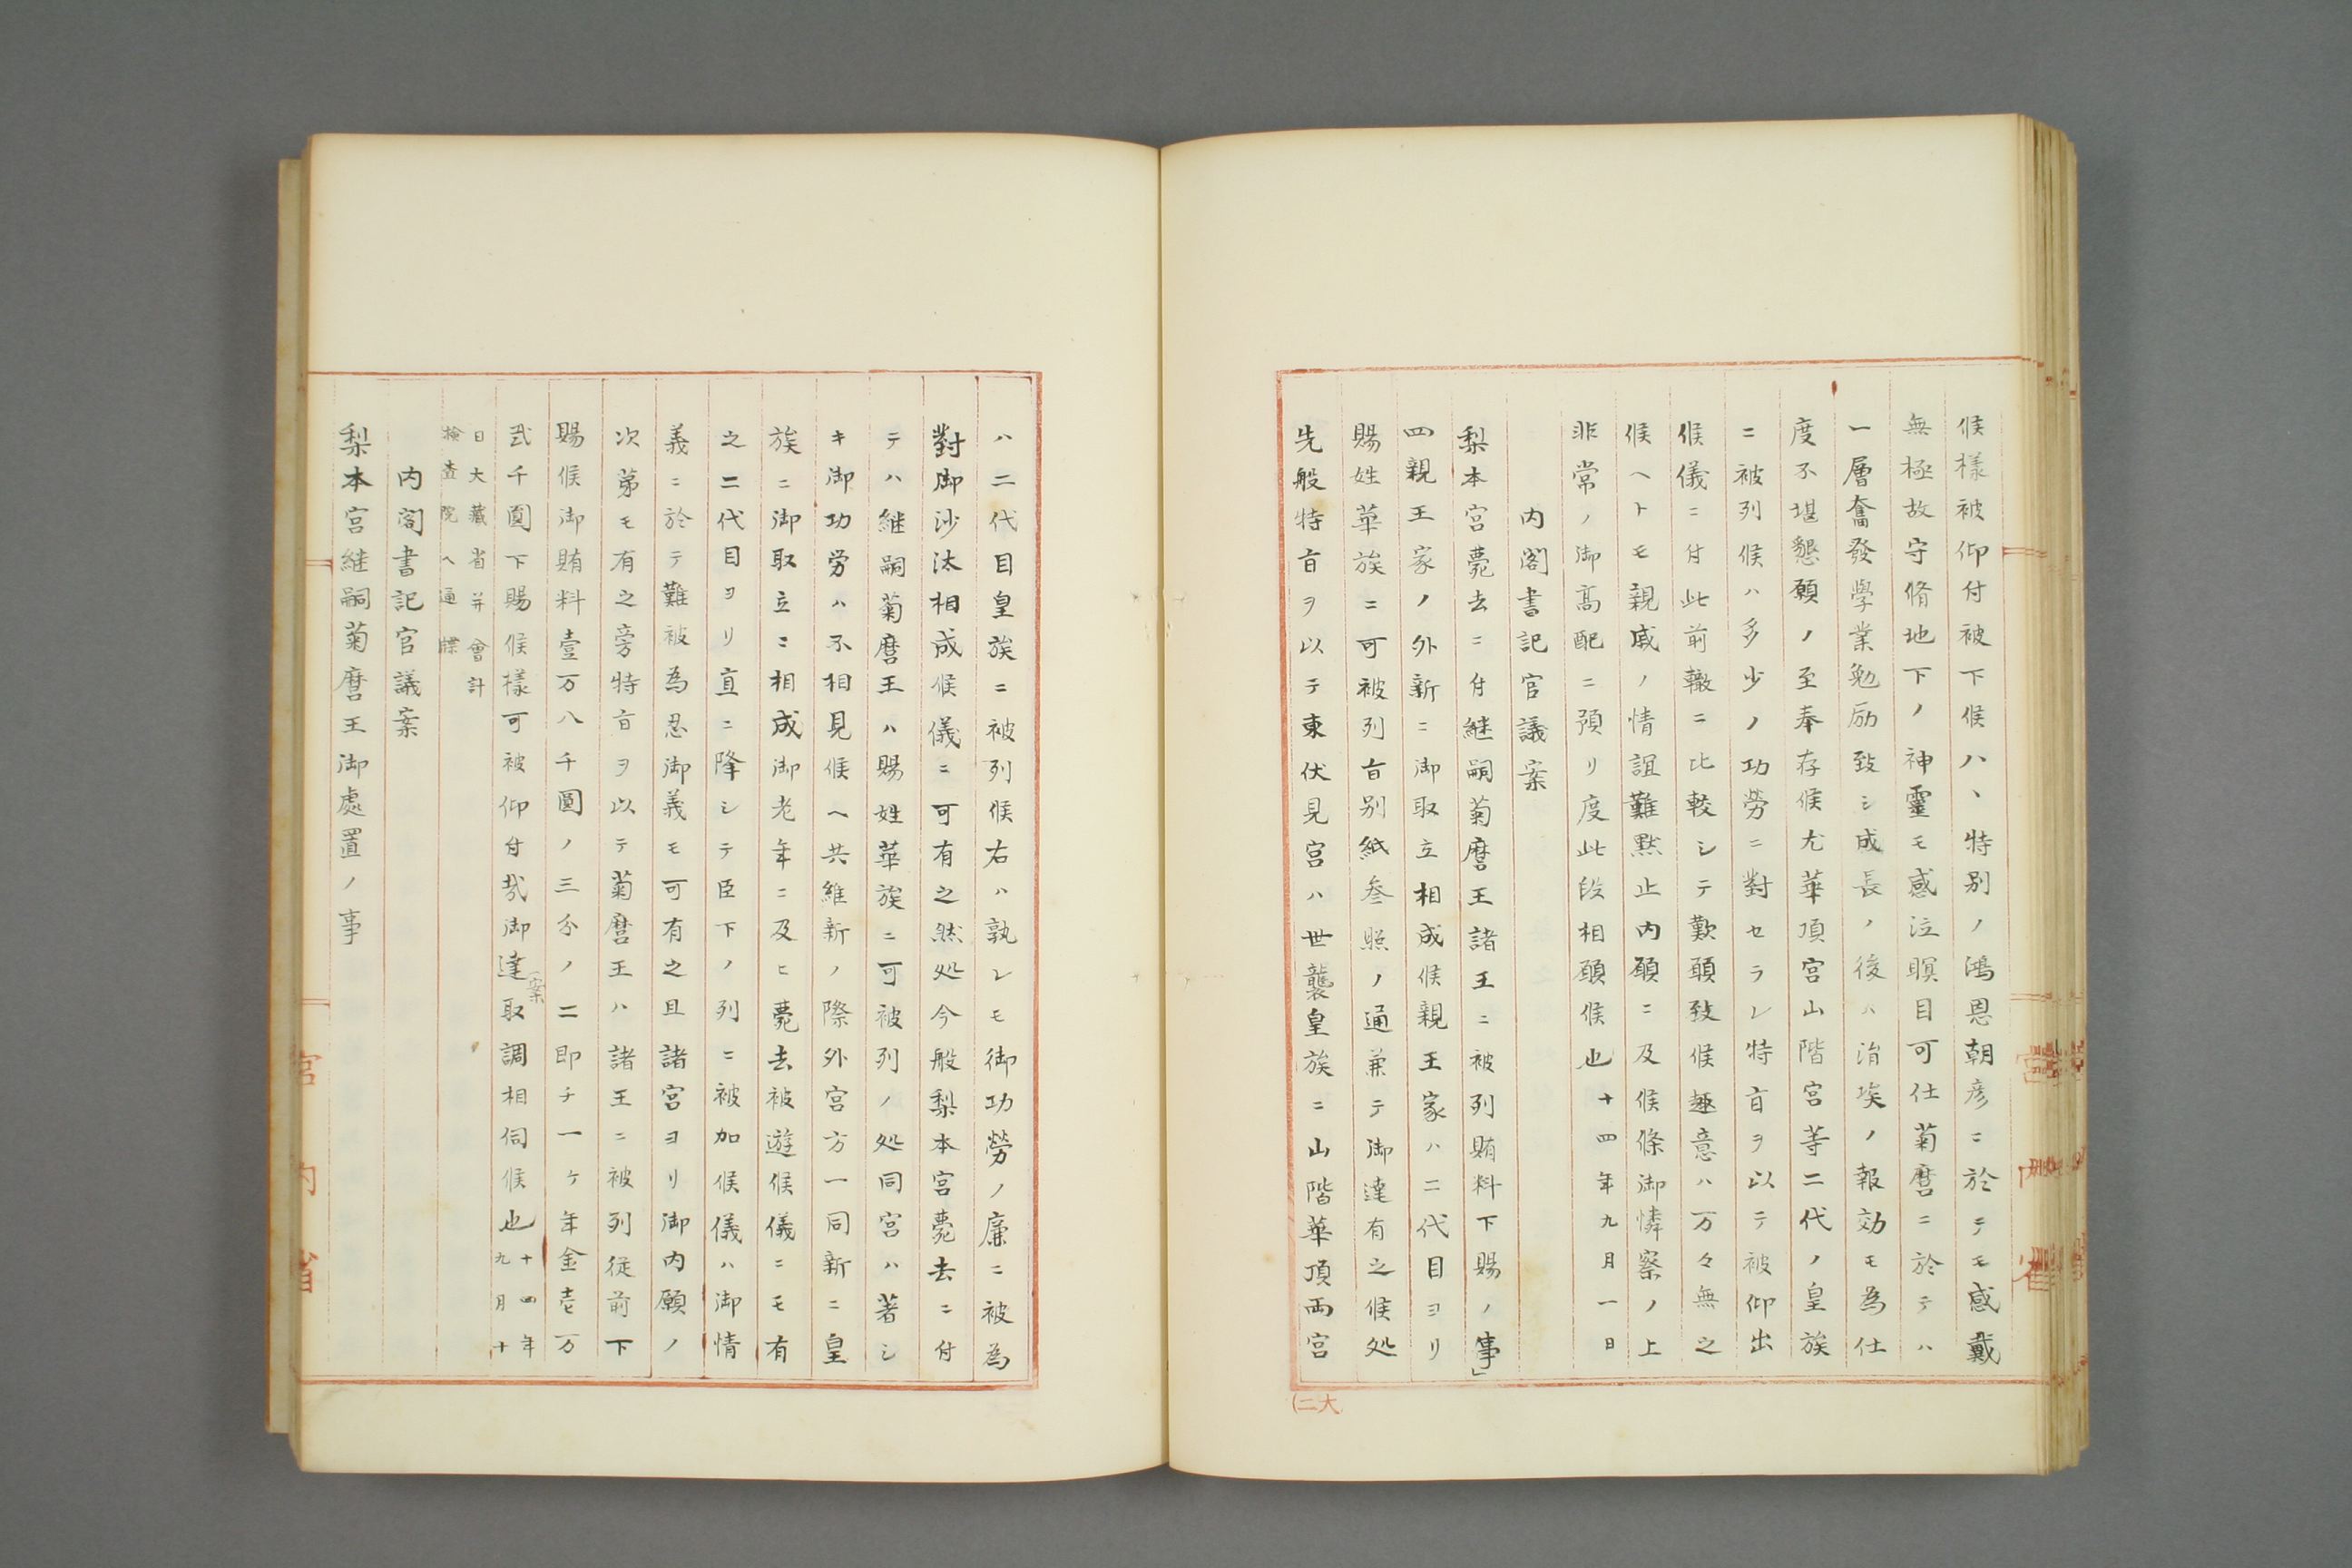 候樣被仰付被下候ハヽ特別ノ鴻恩朝彦ニ於テモ感戴
無極故守脩地下ノ神靈モ感泣瞑目可仕菊麿ニ於テハ
一層奮發學業勉励致シ成長ノ後ハ涓埃ノ報効モ為仕
度不堪懇願ノ至奉存候尤華頂宮山階宮等二代ノ皇族
ニ被列候ハ多少ノ功勞ニ對セラレ特旨ヲ以テ被仰出
候儀ニ付此前轍ニ比較シテ歎願致候趣意ハ万々無之
候ヘトモ親戚ノ情誼難黙止内願ニ及候條御憐察ノ上
非常ノ御高配ニ預リ度此段相願候也十四年九月一日
内閣書記官議案
梨本宮薨去ニ付継嗣菊麿王諸王ニ被列賄料下賜ノ事」
四親王家ノ外新ニ御取立相成候親王家ハ二代目ヨリ
賜姓華族ニ可被列旨別紙叄照ノ通兼テ御達有之候処
先般特旨ヲ以テ東伏見宮ハ世襲皇族ニ山階華頂両宮
大二
ハ二代目皇族ニ被列候右ハ孰レモ御功勞ノ廉ニ被為
對御沙汰相成候儀ニ可有之然処今般梨本宮薨去ニ付
テハ継嗣菊麿王ハ賜姓華族ニ可被列ノ処同宮ハ著シ
キ御功労ハ不相見候ヘ共維新ノ際外宮方一同新ニ皇
族ニ御取立ニ相成御老年ニ及ヒ薨去被遊候儀ニモ有
之二代目ヨリ直ニ降シテ臣下ノ列ニ被加候儀ハ御情
義ニ於テ難被為忍御義モ可有之且諸宮ヨリ御内願ノ
次第モ有之旁特旨ヲ以テ菊麿王ハ諸王ニ被列従前下
賜候御賄料壹万八千圓ノ三分ノ二即チ一ヶ年金壱万
弐千圓下賜候樣可被仰付哉御達案取調相伺候也十四年九月十
日大藏省并會計
檢査院ヘ通牒
内閣書記官議案
梨本宮継嗣菊麿王御處置ノ事
宮内省